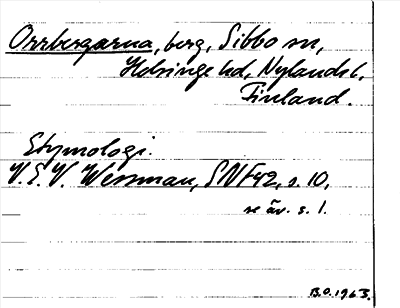 Orrbergarna, berg, Sibbo sn,
Helsinge hd, Nylands l,
Finland.
Etymologi.
V.E.V. Wessman, SNF42, s. 10,
se äv. s. 1.
B.O. 1963.